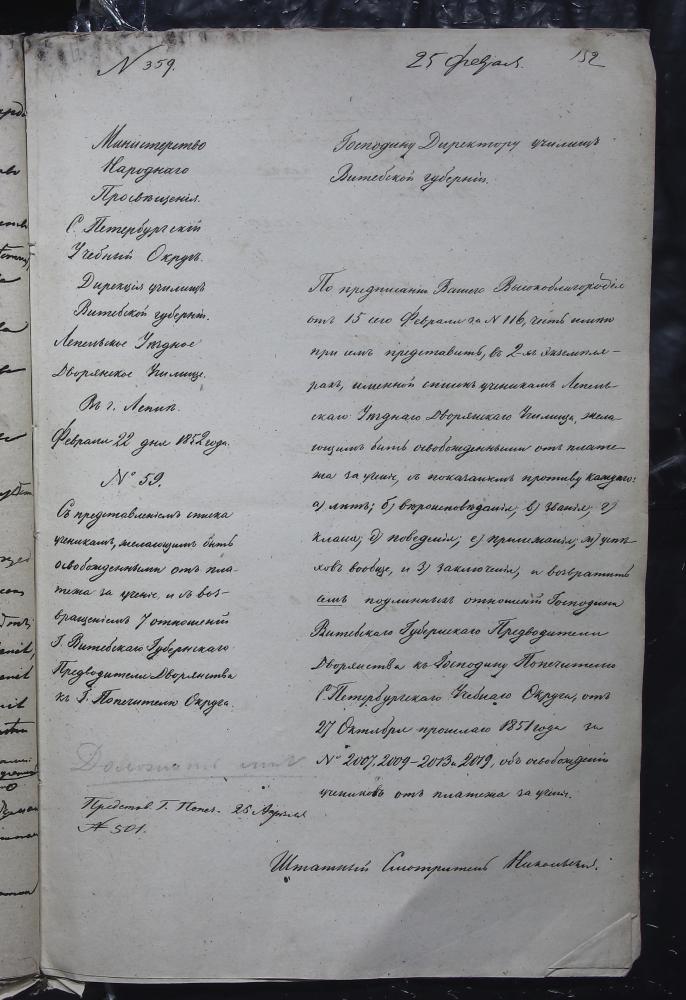 N 359.
25 февраля.
152
Министерство
Народнаго
Просвѣщенія.
С. Петербургскій
Учебный Округъ.
Дирекція училищъ
Витебской губерніи.
Лепельское Уѣздное
Дворянское Училище.
Въ г. Лепелѣ.
Февраля 22 дня 1852 года.
№ 59.
Съ представленіемъ списка
ученикамъ, желающимъ быть
освобожденными отъ пла-
тежа за ученіе, и съ воз-
вращеніемъ 7 отношеній
Г. Витебскаго Губернскаго
Предводителя Дворянства
къ Г. Попечителю Округа.
Доложить мнѣ
Представ. Г. Попеч. 25 Апрѣля
№ 501.
Господину Директору училищъ
Витебской губерніи.
По предписанію Вашего Высокоблагородія
отъ 15 сего Февраля за N 116, честь имѣю
при семъ представить, въ 2-хъ экземпля-
рахъ, именной списокъ ученикамъ Лепель-
скаго Уѣзднаго Дворянскаго Училища, жела
ющимъ быть освобожденными отъ плате-
жа за ученіе, съ показаніемъ противу каждаго:
а) лѣтъ; б) вѣроисповѣданія; в) званія; г)
класса; д) поведенія; е) прилежанія; ж) успѣ-
ховъ вообще, и з) заключенія, и возвратить
семь подлинныхъ отношеній Господина
Витебскаго Губернскаго Предводителя
Дворянства къ Господину Попечителю
С. Петербургскаго Учебнаго Округа, отъ
27 Октября прошлаго 1851 года за
№ 2007, 2009-2013 и 2019, объ освобожденіи
учениковъ отъ платежа за ученіе.
Штатный Смотритель Никольскій.